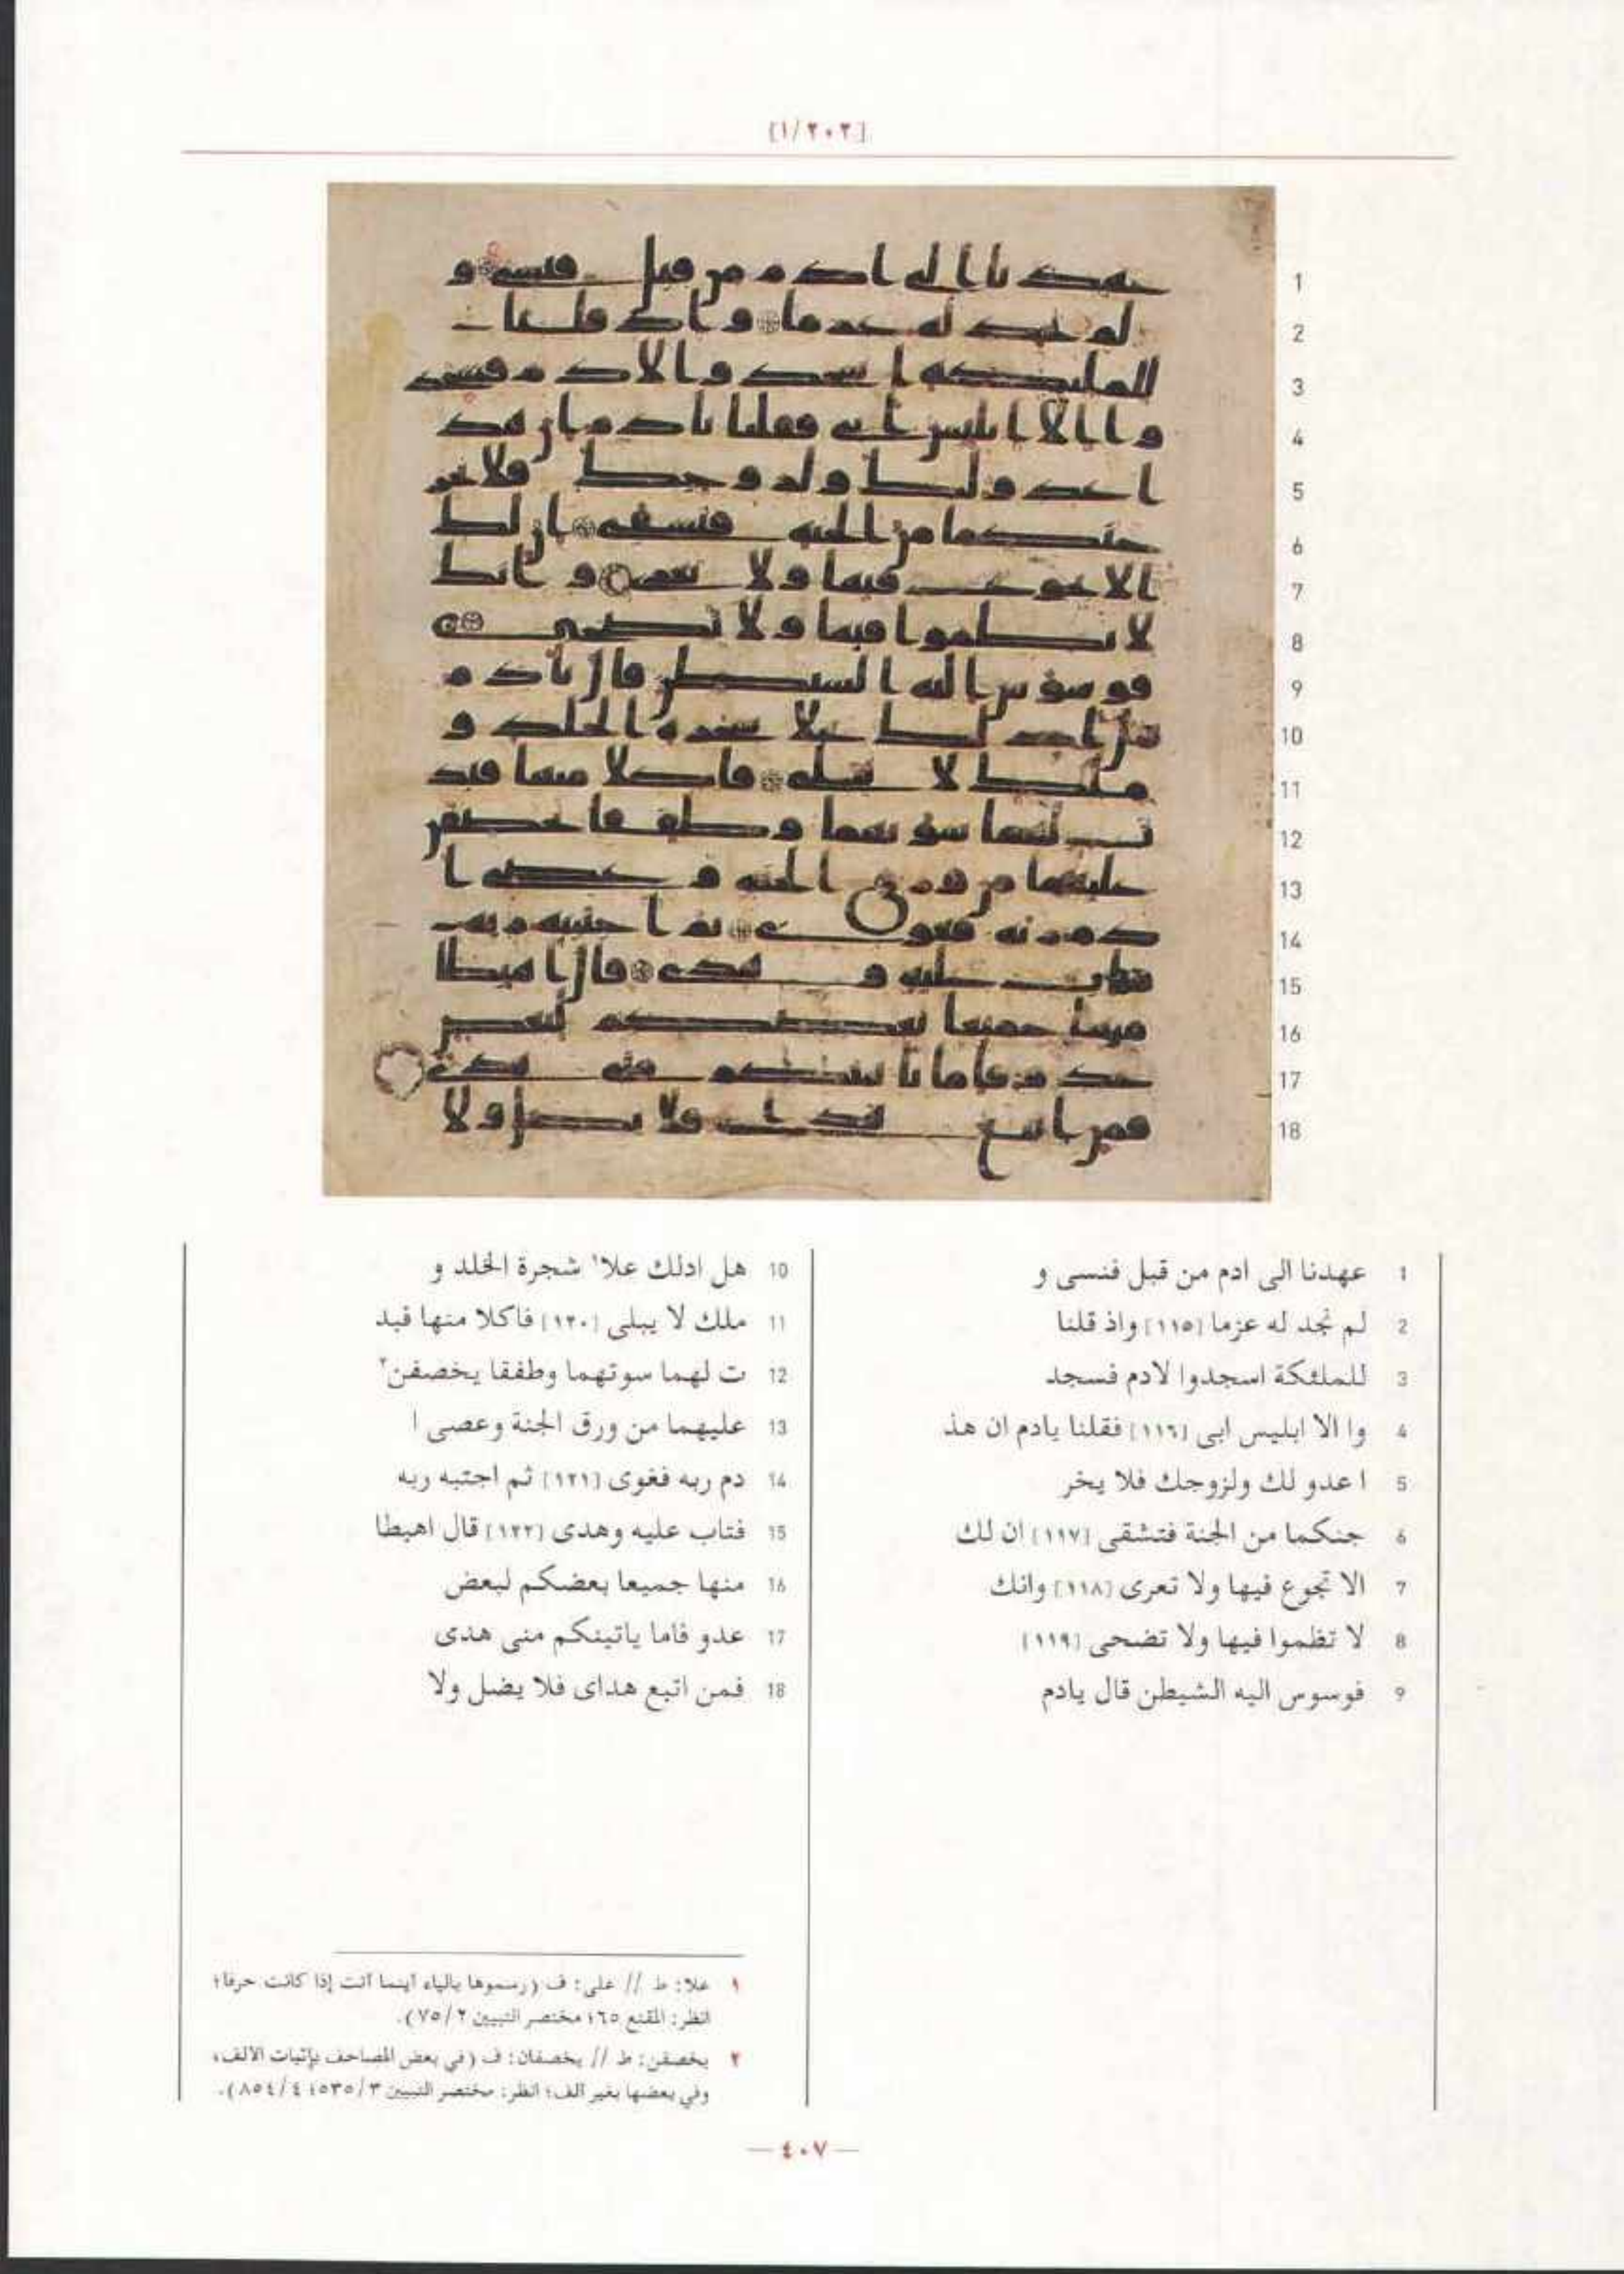 [١/٢٠٢]
1 عهدنا الى ادم من قبل فنسى و
2 لم نجد له عزما [١١٥] واذ قلنا
3 للملئكة اسجدوا لادم فسجد
4 وا الا ابليس ابى [١١٦] فقلنا يادم ان هذ
5 ا عدو لك ولزوجك فلا يخر
6 جنكما من الجنة فتشقى [١١٧] ان لك
7 الا تجوع فيها ولا تعرى [١١٨] وانك
8 لا تظموا فيها ولا تضحى [١١٩]
9 فوسوس اليه الشيطن قال يادم
10 هل ادلك علا١ شجرة الخلد و
11 ملك لا يبلى [١٢٠] فاكلا منها فبد
12 ت لهما سوتهما وطفقا يخصفن٢
13 عليهما من ورق الجنة وعصى ا
14 دم ربه فغوى [١٢١] ثم اجتبه ربه
15 فتاب عليه وهدى [١٢٢] قال اهبطا
16 منها جميعا بعضكم لبعض
17 عدو فاما ياتينكم منى هدى
18 فمن اتبع هداى فلا يضل ولا
١ علا: ط // على: ف (رسموها بالياء أينما أتت إذا كانت حرفا؛
انظر: المقنع ٦٥؛ مختصر التبيين ٧٥/٢).
٢ يخصفن: ط // يخصفان: ف (في بعض المصاحف بإثبات الألف،
وفي بعضها بغير ألف؛ انظر: مختصر التبيين ٥٣٥/٣؛ ٨٥٤/٤).
— ٤٠٧ —